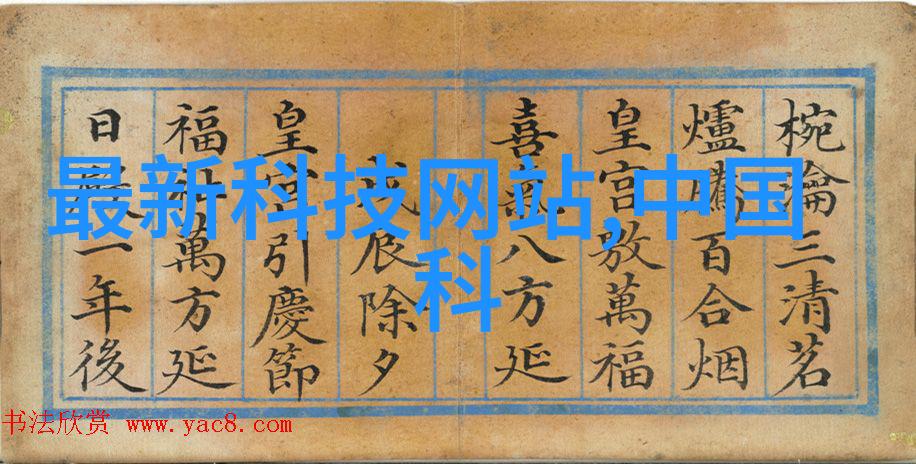 最新科技网站,中国
科
椀瀹三清茗
爐騰百合烟
皇宫敷萬福
喜氣八方延
戊辰除夕
皇宫引慶節
福 萬方延
日 一年後
书法欣赏 www.yac8.com